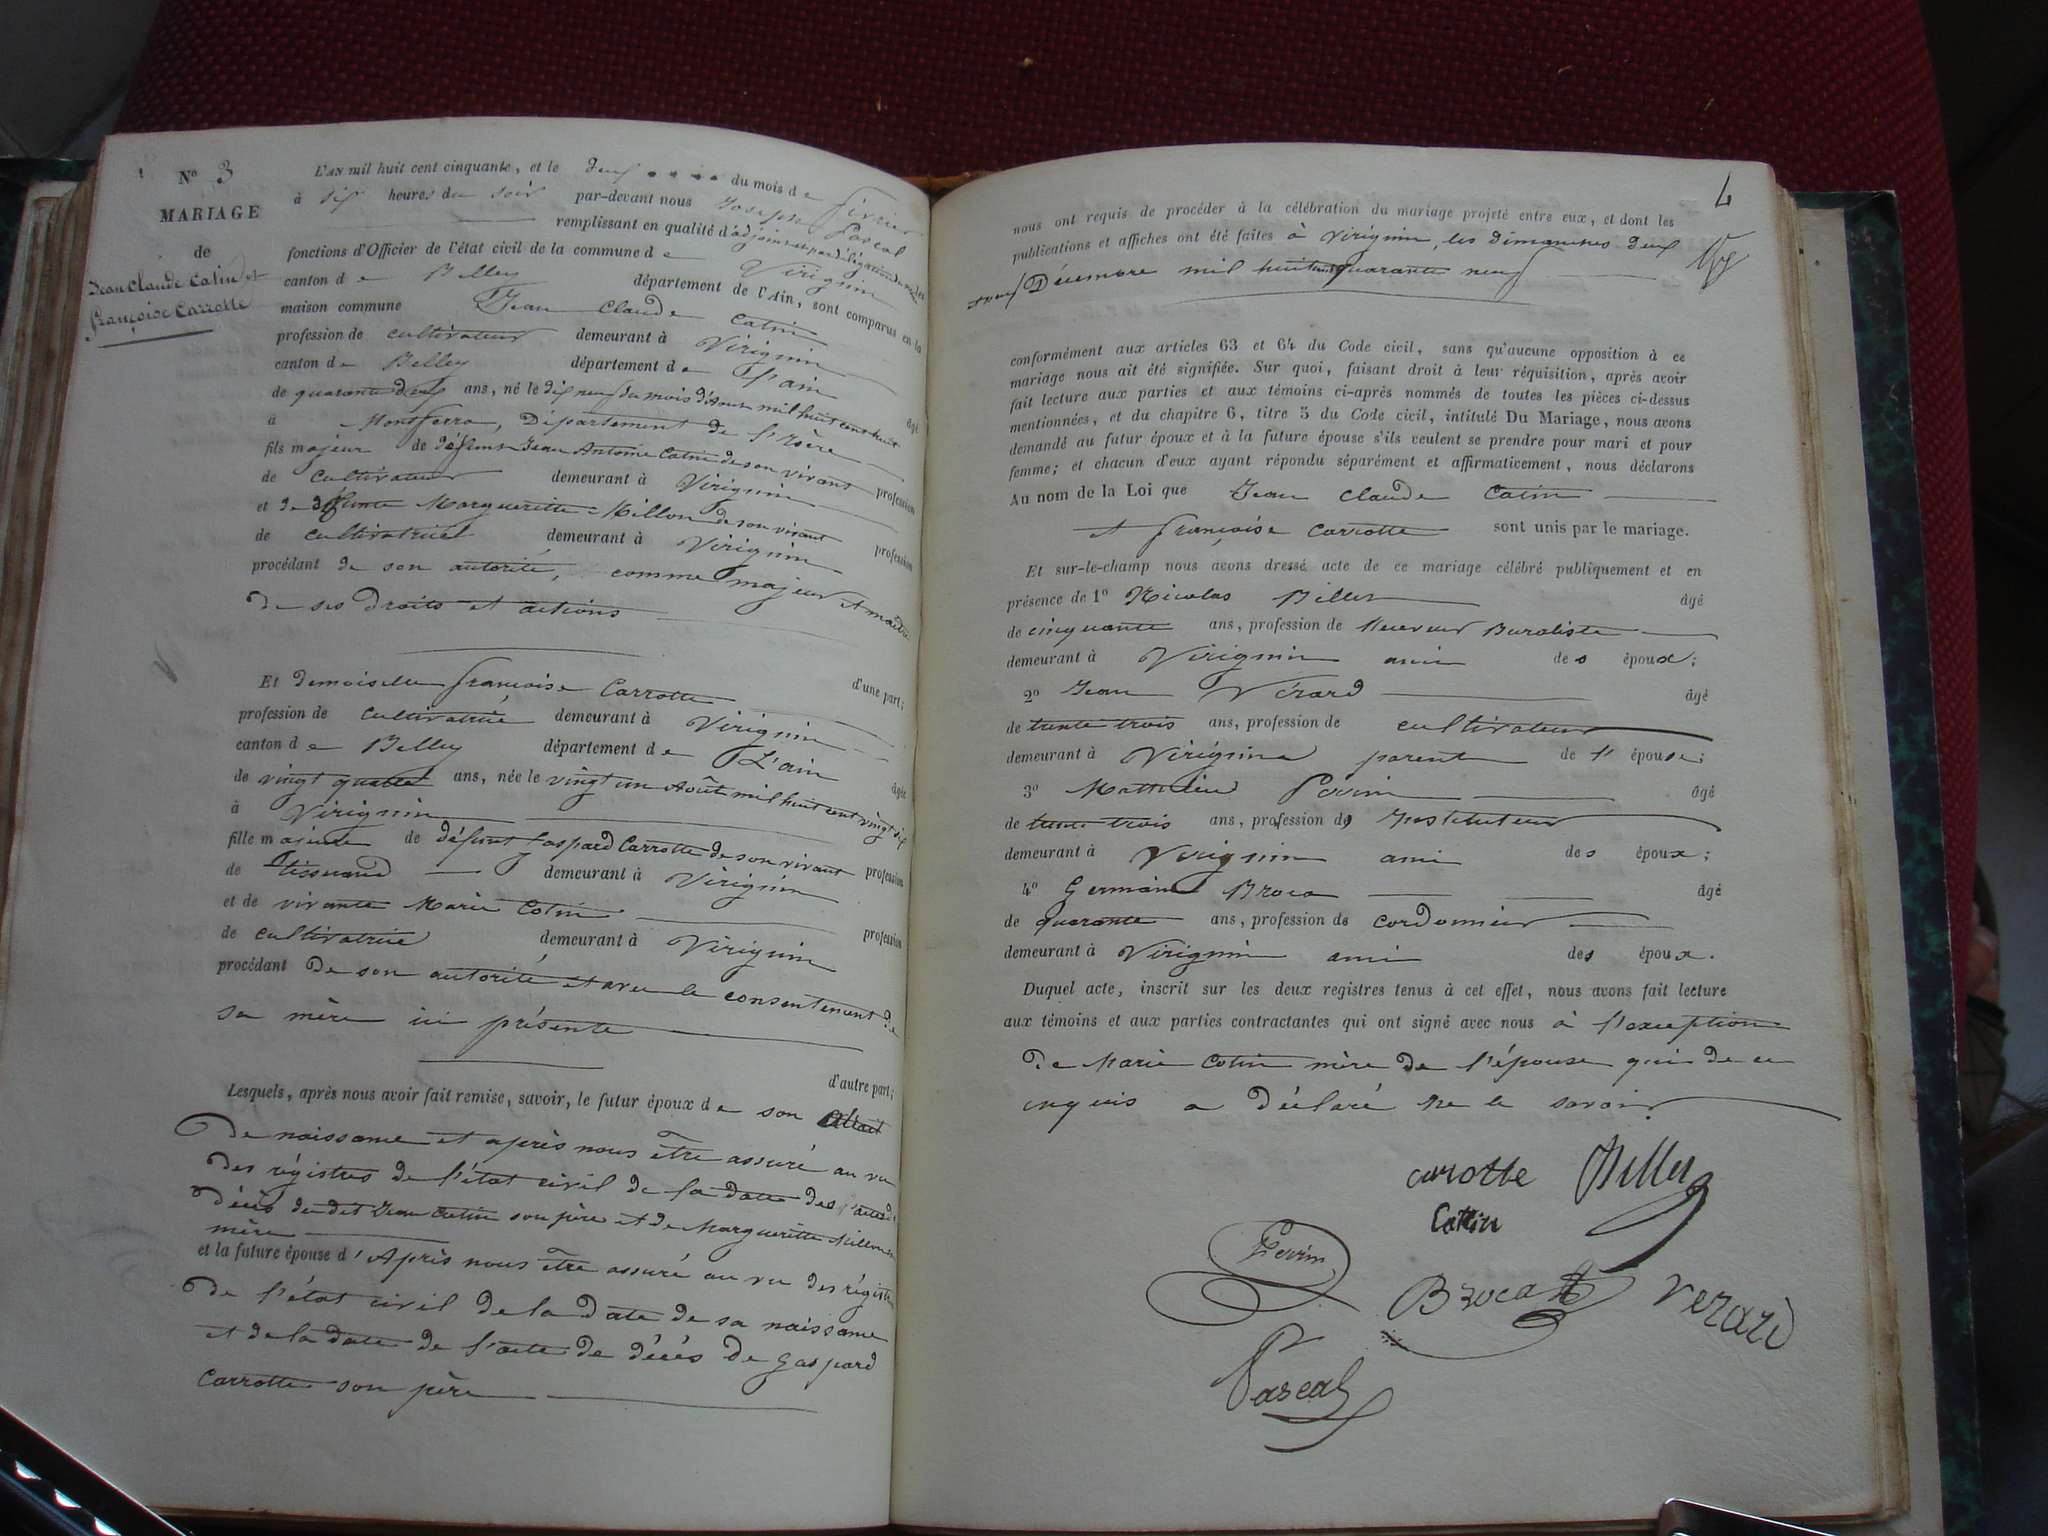 N° 3
MARIAGE
de
Jean Claude Catin et
françoise Carrotte
L'AN mil huit cent cinquante, et le deux du mois de février
à six heures du soir par-devant nous Joseph Pascal
remplissant en qualité d'adjoint et par délégation du maire les
fonctions d'Officier de l'état civil de la commune de Virignin
canton de Belley département de l'Ain, sont comparus en la
maison commune Jean Claude Catin
profession de cultivateur demeurant à Virignin
canton de Belley département de l'ain âgé
de quarante deux ans, né le dix neuf du mois d'Aout mil huit cent huit
à Montferra, Département de l'Isère
fils majeur de défunt Jean Antoine Catin de son vivant profession
de cultivateur demeurant à Virignin
et de défunte Margueritte Millon de son vivant profession
de cultivatrice demeurant à Virignin
procédant de son autorité, comme majeur et maître
de ses droits et actions
d'une part;
Et demoiselle françoise Carrotte
profession de cultivatrice demeurant à Virignin
canton de Belley département de L'ain âgée
de vingt quatre ans, née le vingt un Août mil huit cent vingt six
à Virignin
fille majeure de défunt Gaspard Carrotte de son vivant profession
de tisserand demeurant à Virignin
et de vivante Marie Cotin profession
de cultivatrice demeurant à Virignin
procédant de son autorité et avec le consentement de
sa mère ici présente
d'autre part;
Lesquels, après nous avoir fait remise, savoir, le futur époux de son
de naissance et après nous être assuré au vu
des régistres de l'état civil de la date des actes de
décès du dit Jean Catin son père et de Margueritte Millon sa
mère
et la future épouse d'Après nous être assuré au vu des régistres
de l'état civil de la date de sa naissance
et de la date de l'acte de décès de Gaspard
Carrotte son père
4
nous ont requis de procéder à la célébration du mariage projeté entre eux, et dont les
publications et affiches ont été faites à Virignin, les dimanches deux
et neuf Décembre mil huit cent quarante neuf
conformément aux articles 63 et 64 du Code civil, sans qu'aucune opposition à ce
mariage nous ait été signifiée. Sur quoi, faisant droit à leur réquisition, après avoir
fait lecture aux parties et aux témoins ci-après nommés de toutes les pièces ci-dessus
mentionnées, et du chapitre 6, titre 5 du Code civil, intitulé Du Mariage, nous avons
demandé au futur époux et à la future épouse s'ils veulent se prendre pour mari et pour
femme; et chacun d'eux ayant répondu séparément et affirmativement, nous déclarons
Au nom de la Loi que Jean Claude Catin
et françoise Carrotte sont unis par le mariage.
Et sur-le-champ nous avons dressé acte de ce mariage célébré publiquement et en
présence de 1° Nicolas Billet âgé
de cinquante ans, profession de Receveur Buraliste
demeurant à Virignin ami des époux;
2° Jean Vérard âgé
de trente trois ans, profession de cultivateur
demeurant à Virignin parent de l'épouse;
3° Matthieu Perrin âgé
de trente trois ans, profession de Instituteur
demeurant à Virignin ami des époux;
4° Germain Broca âgé
de quarante ans, profession de cordonnier
demeurant à Virignin ami des époux.
Duquel acte, inscrit sur les deux registres tenus à cet effet, nous avons fait lecture
aux témoins et aux parties contractantes qui ont signé avec nous à l'exception
de Marie Cotin mère de l'épouse qui de ce
enquis a déclaré ne le savoir.
carotte Billet
Catin
Perrin
Broca Verard
Pascal